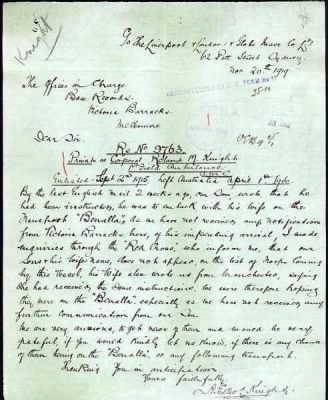 Knight
To the Liverpool & London & Globe Insce Co Ltd
62 Pitt Street Sydney
Nov 20th 1919.
The Officer in Charge
Base Records,
Victoria Barracks
Melbourne
Dear Sir.
Re No 9763
Private or Corporal Roland M. Knight
Field Ambulance
Enlisted Sept 22nd 1915, left Australia April 1st 1916
By the last English Mail 2 weeks ago, our Son wrote that he
had been instructed, he was to embark with his wife on the
Transport "Benalla". As we have not received any notification
from Victoria Barracks here, of his impending arrival, I made
enquiries through the Red Cross, who inform me, that our
Sons & his Wife's name, does not appear, on the list of troops coming
by this Vessel, his Wife also wrote us from Manchester, saying
she had received the same instructions. We were therefore hoping
they were on the "Benalla", especially as we have not received any
further communication from our Son.
We are very anxious, to get news of them and would be very
grateful, if you would kindly let me know, if there is any chance
of them being on the "Benalla", or any following transport.
Thanking You in anticipation
Yours faithfully,
Knight